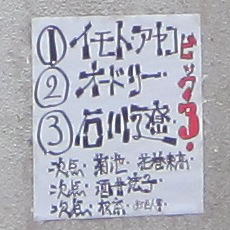 ① イモトアヤコ
② オードリー
③ 石川遼
ビッグ3!
次点 菊池 花巻東高
次点 酒井法子
次点